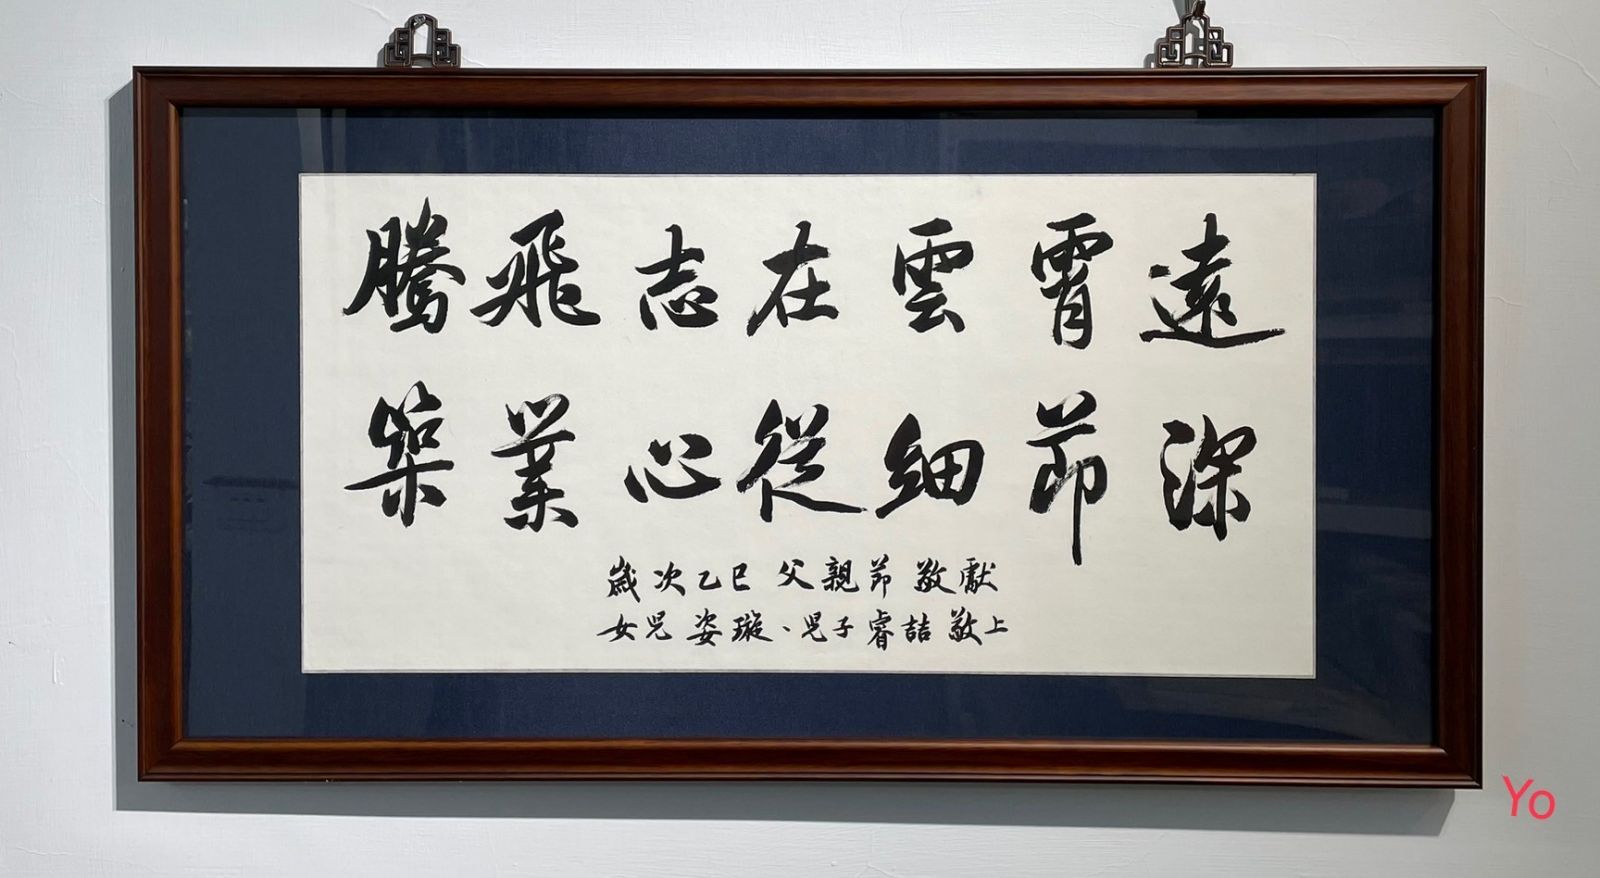 騰飛志在雲霄遠
築業心從細節深
歲次乙巳 父親節 敬獻
女兒 姿璇、兒子 睿喆 敬上
Yo